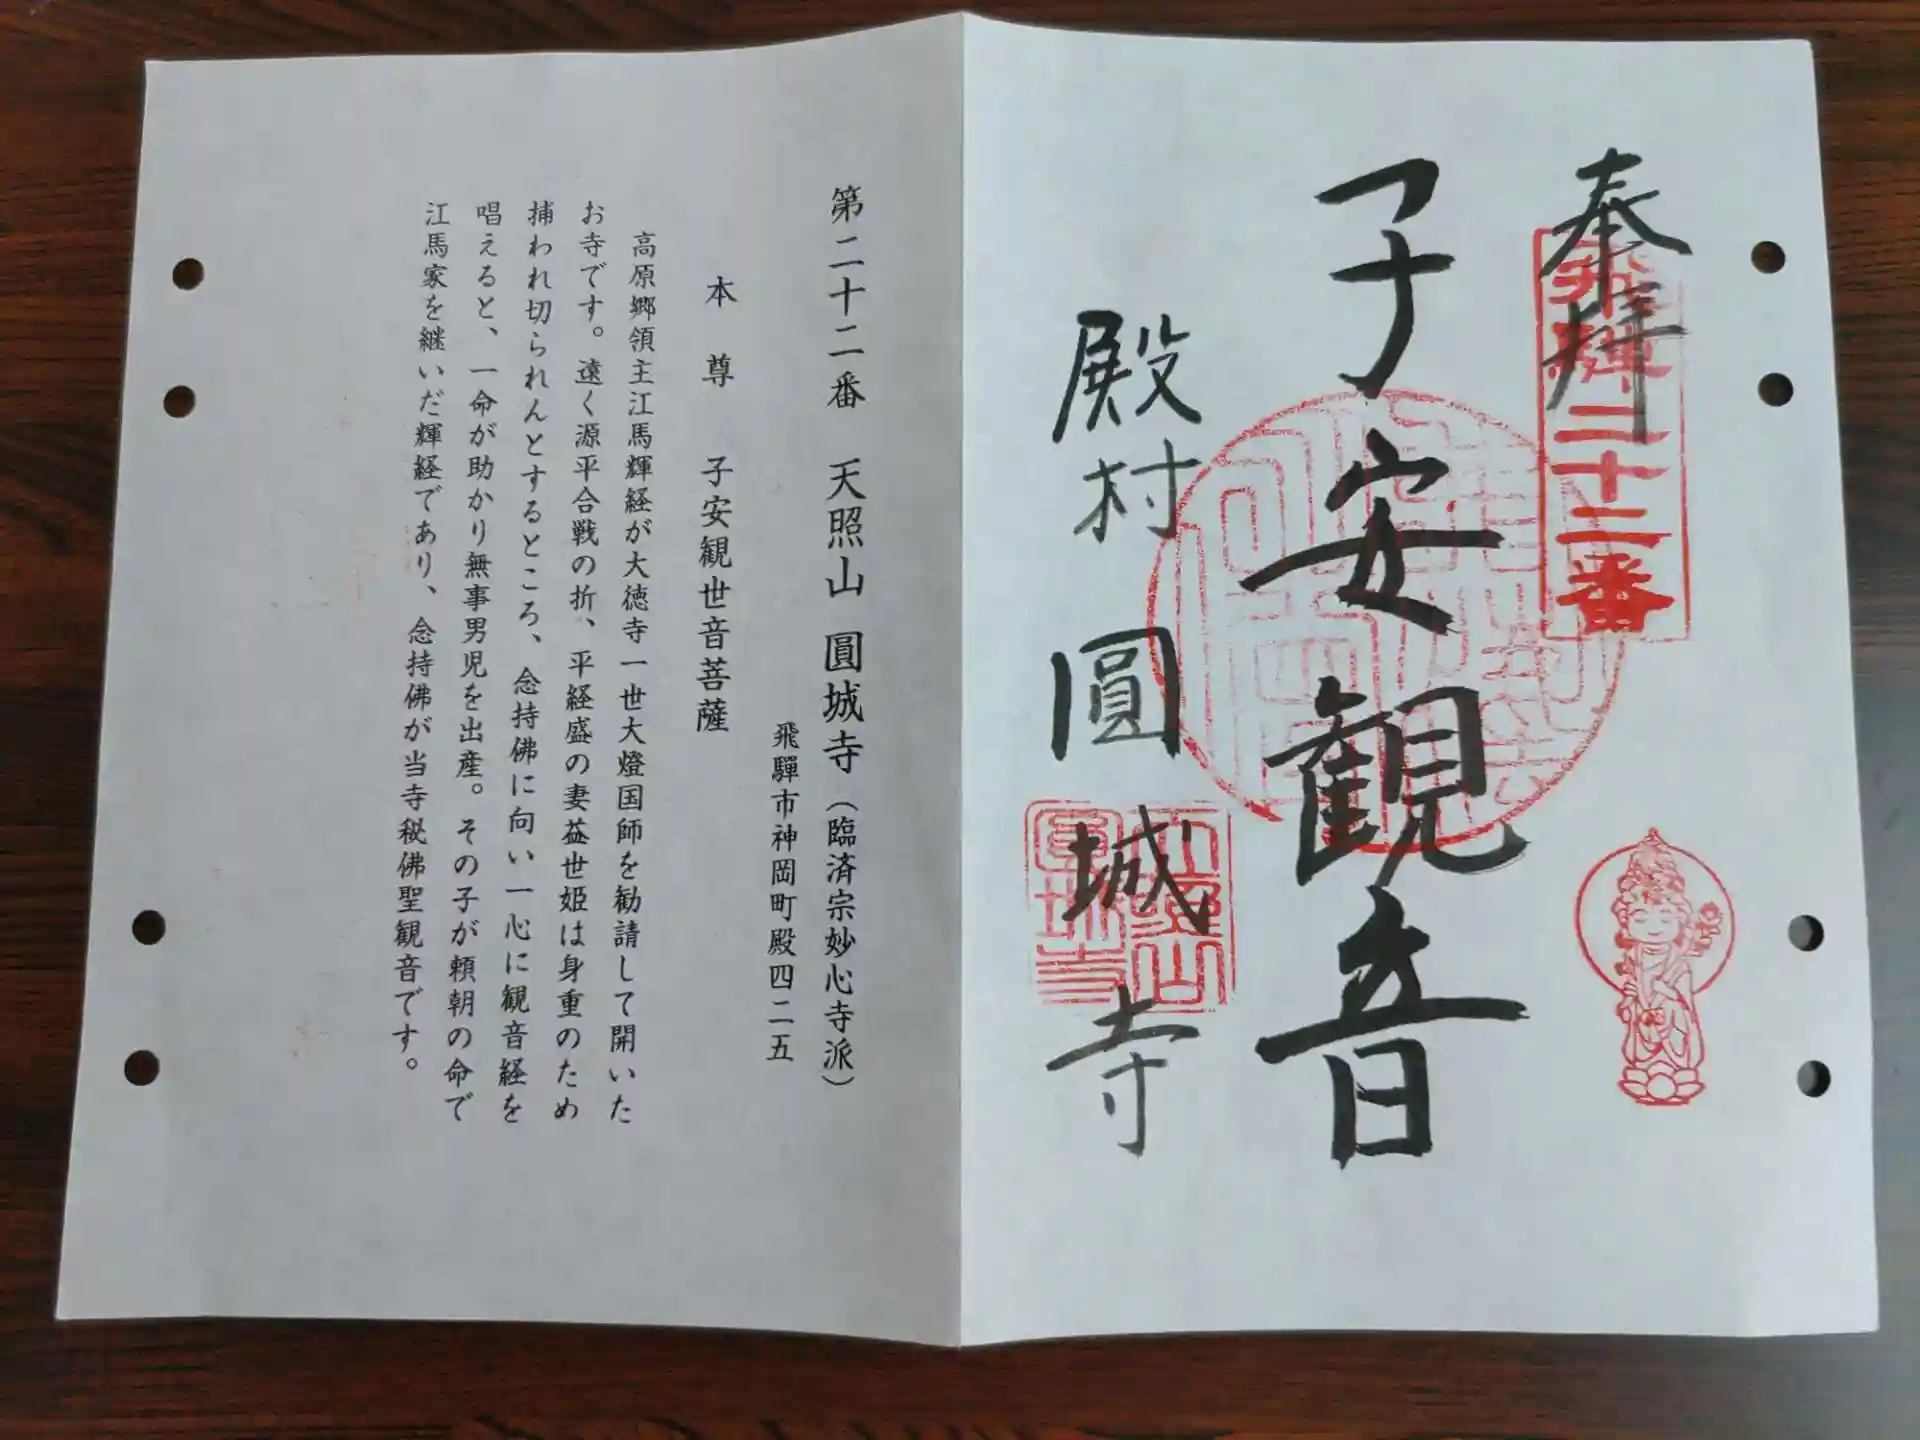 奉拝
飛騨二十二番
子安観音
殿村 圓城寺
第二十二番 天照山 圓城寺（臨済宗妙心寺派）
飛驒市神岡町殿四二五
本尊 子安観世音菩薩
高原郷領主江馬輝経が大徳寺一世大燈国師を勧請して開いた
お寺です。遠く源平合戦の折、平経盛の妻益世姫は身重のため
捕われ切られんとするところ、念持佛に向い一心に観音経を
唱えると、一命が助かり無事男児を出産。その子が頼朝の命で
江馬家を継いだ輝経であり、念持佛が当寺秘佛聖観音です。